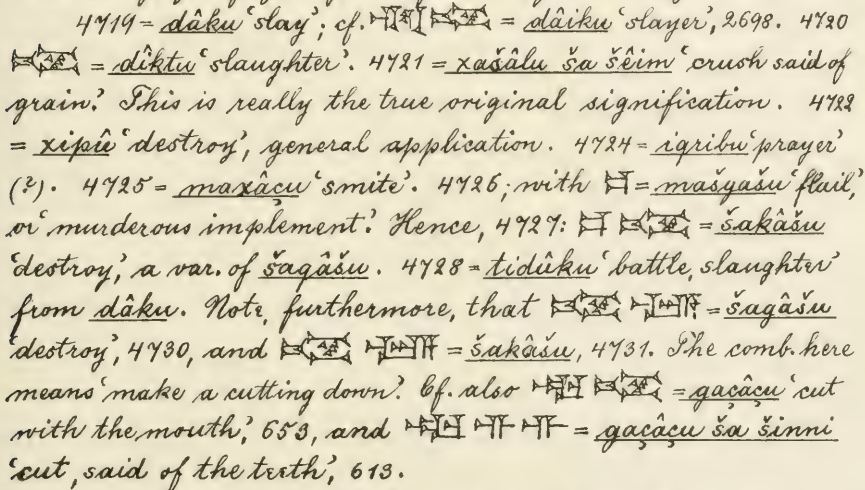 4719 = dâku ‘slay’; cf. = dâiku ‘slayer’, 2698. 4720
= dîktu ‘slaughter’. 4721 = xašâlu ša šêim ‘crush said of
grain.’ This is really the true original signification. 4722
= xipû ‘destroy’, general application. 4724 = iqribu ‘prayer’
(?). 4725 = maxâçu ‘smite’. 4726; with = mašgašu ‘flail,’
or ‘murderous implement.’ Hence, 4727: = šakâšu
‘destroy,’ a var. of šagâšu. 4728 = tidûku ‘battle, slaughter’
from dâku. Note, furthermore, that = šagâšu
‘destroy’, 4730, and = šakâšu, 4731. The comb. here
means ‘make a cutting down.’ Cf. also = gaçâçu ‘cut
with the mouth,’ 653, and = gaçâçu ša šinni
‘cut, said of the teeth’, 613.